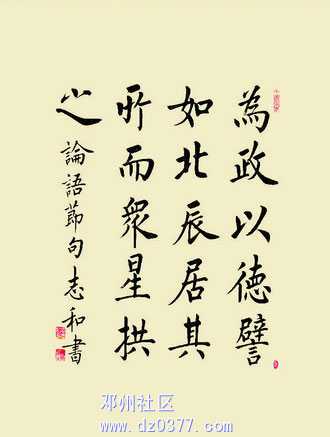 為政以德譬
如北辰居其
所而衆星拱
之
論語節句志和書
邓州社区
www.dz0377.com